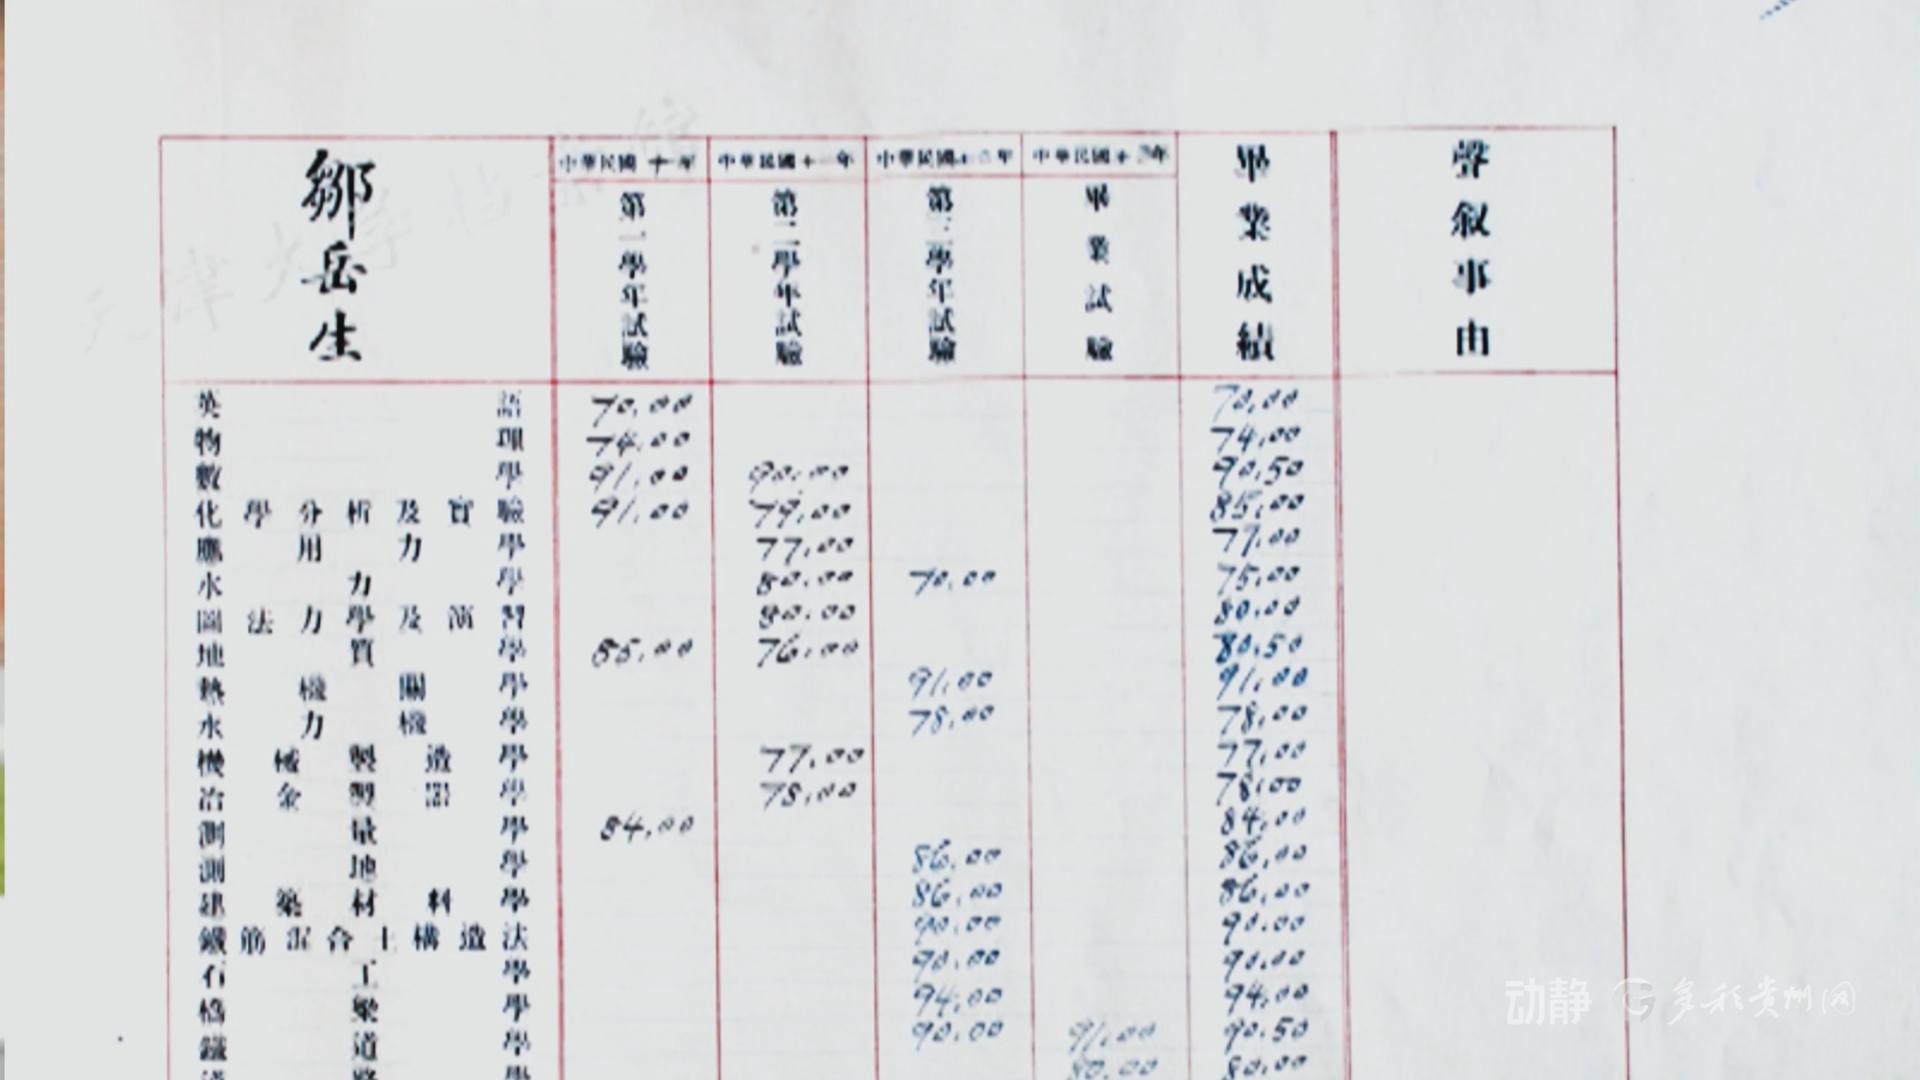 鄒岳生
中華民國十年 中華民國十一年 中華民國十二年 中華民國十 年
第一學年試驗 第二學年試驗 第三學年試驗 畢業試驗 畢業成績 聲敘事由
英語 70.00 70.00
物理 74.00 74.00
數學 91.00 90.00 90.50
化學分析及實驗 91.00 79.00 85.00
應用力學 77.00 77.00
水力學 80.00 70.00 75.00
圖法力學及演習 80.00 80.00
地質學 85.00 76.00 80.50
熱機關學 91.00 91.00
水力機學 78.00 78.00
機械製造學 77.00 77.00
冶金製器學 78.00 78.00
測量學 84.00 84.00
測地學 86.00 86.00
建築材料學 86.00 86.00
鐵筋混合土構造法 90.00 90.00
石工學 90.00 90.00
橋梁學 94.00 94.00
鐵道學 90.00 91.00 90.50
80.00 80.00
天津大学档案馆
动静 多彩贵州网